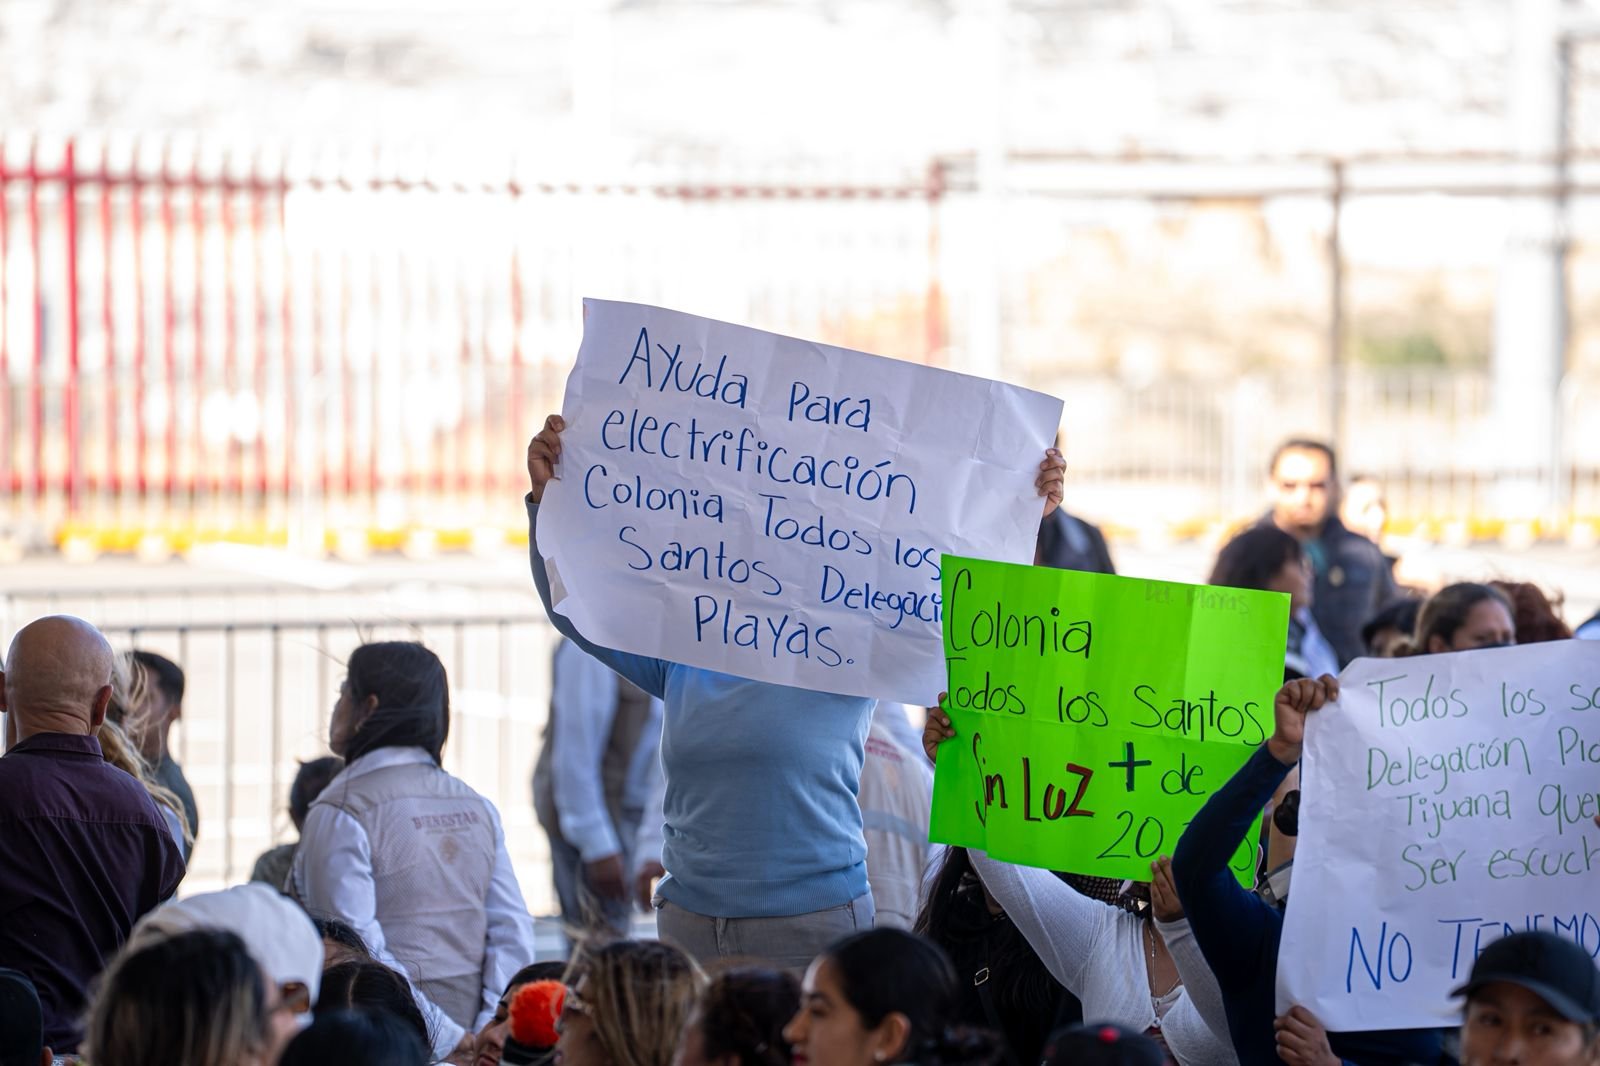 Ayuda Para
electrificación
Colonia Todos los
Santos Delegaci
Playas.
Del. Playas
Colonia
Todos los Santos
Sin Luz + de
20
Todos los
Delegación
Tijuana
Ser
NO TENEMO
BIENESTAR